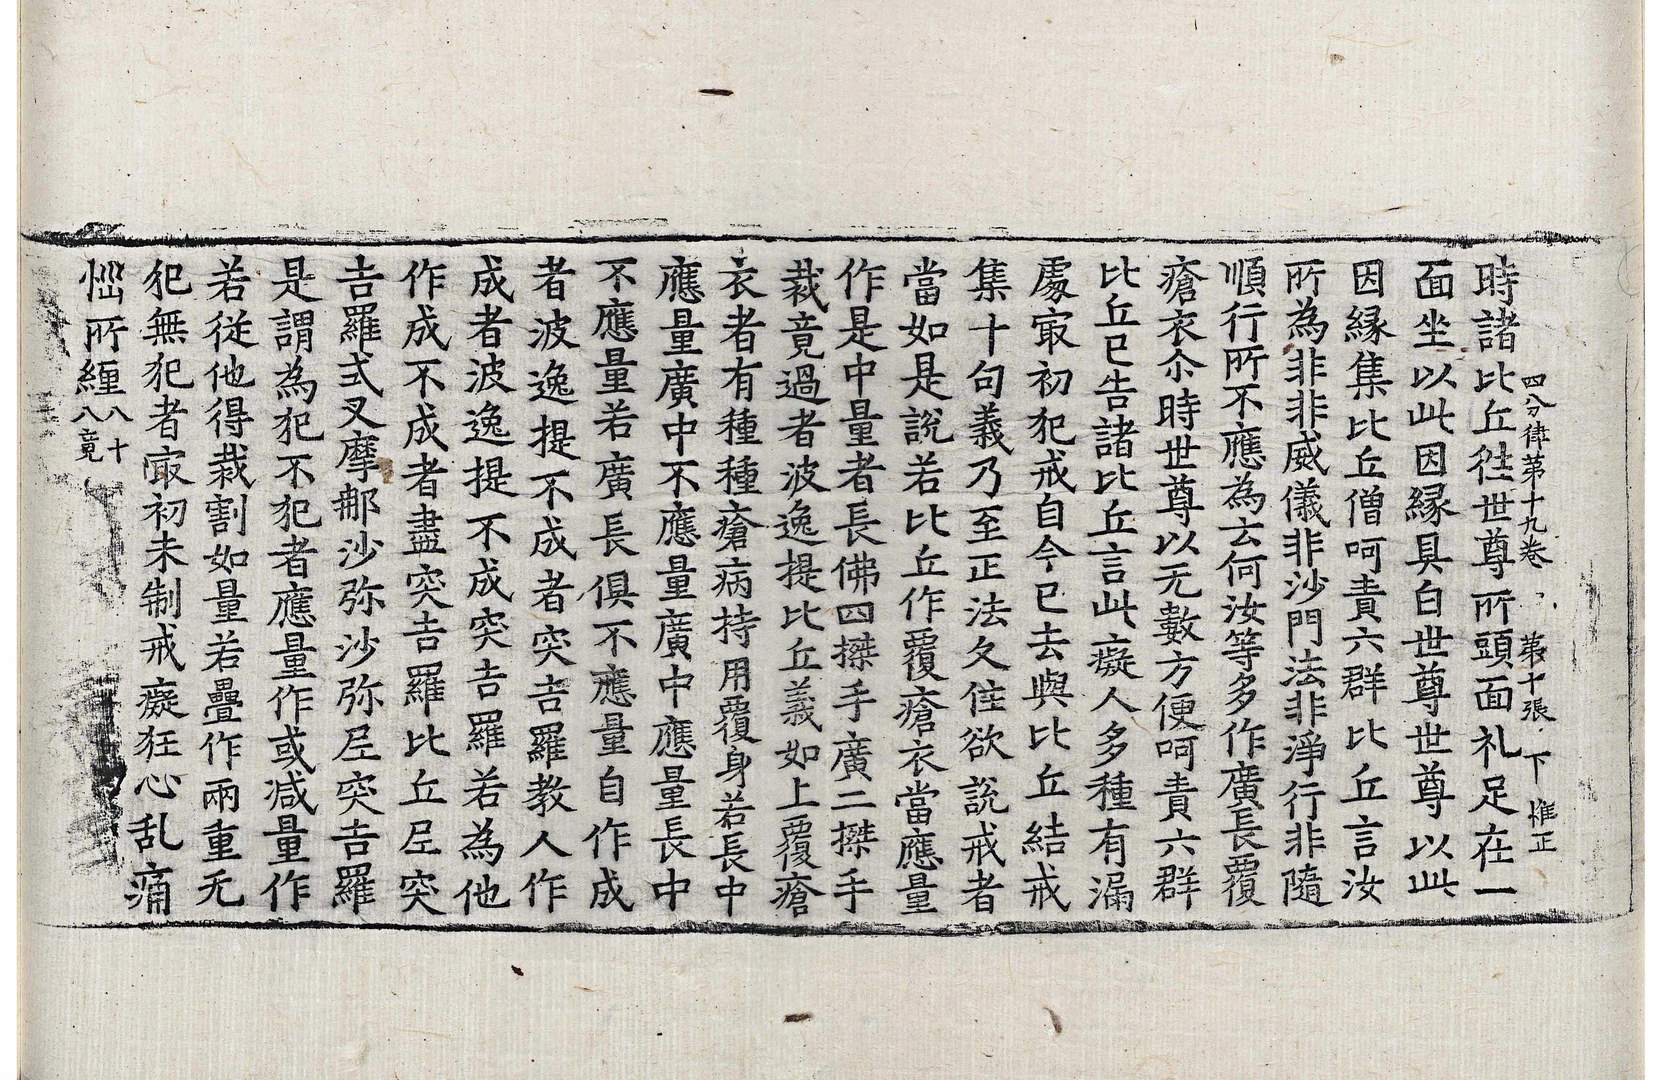 四分律第十九卷　第十張　下　惟正
時諸比丘徃世尊所頭面礼足在一
面坐以此因縁具白世尊世尊以此
因縁集比丘僧呵責六群比丘言汝
所為非非威儀非沙門法非淨行非隨
順行所不應為云何汝等多作廣長覆
瘡衣尒時世尊以无數方便呵責六群
比丘已告諸比丘言此癡人多種有漏
處㝡初犯戒自今已去與比丘結戒
集十句義乃至正法久住欲說戒者
當如是說若比丘作覆瘡衣當應量
作是中量者長佛四搩手廣二搩手
裁竟過者波逸提比丘義如上覆瘡
衣者有種種瘡病持用覆身若長中
應量廣中不應量廣中應量長中
不應量若廣長俱不應量自作成
者波逸提不成者突吉羅教人作
成者波逸提不成突吉羅若為他
作成不成者盡突吉羅比丘尼突
吉羅式叉摩那沙弥沙弥尼突吉羅
是謂為犯不犯者應量作或減量作
若従他得裁割如量若疊作兩重无
犯無犯者㝡初未制戒癡狂心乱痛
惱所纏八十八竟